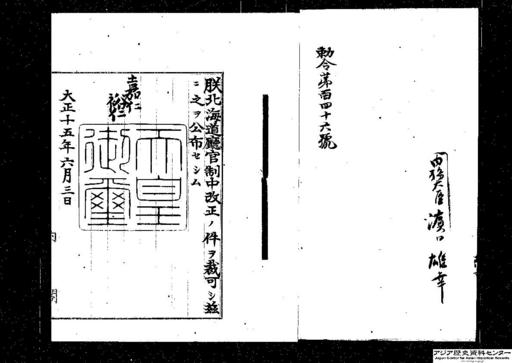 勅令第百四十六號
内務大臣 濱口雄幸
朕北海道廳官制中改正ノ件ヲ裁可シ茲
ニ之ヲ公布セシム
嘉仁
裕仁
天皇御璽
大正十五年六月三日
内閣
アジア歴史資料センター
Japan Center for Asian Historical Records